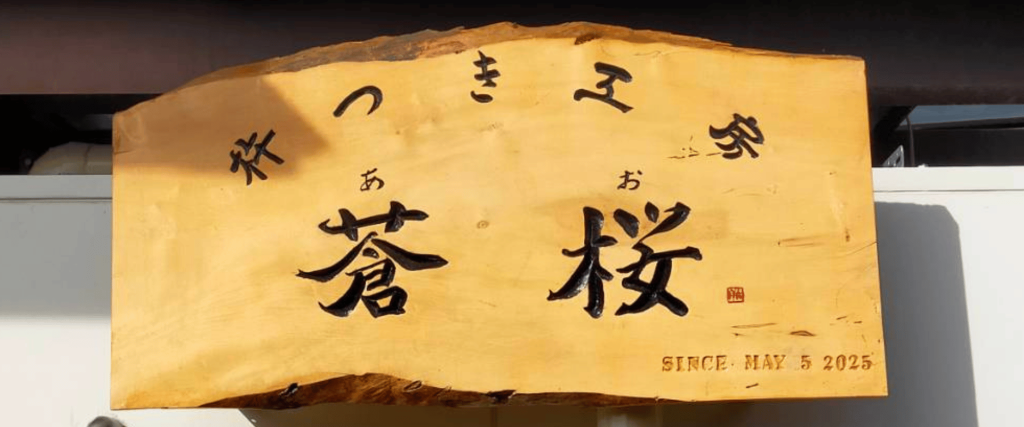 杵つき工房
あ お
蒼桜
SINCE MAY 5 2025